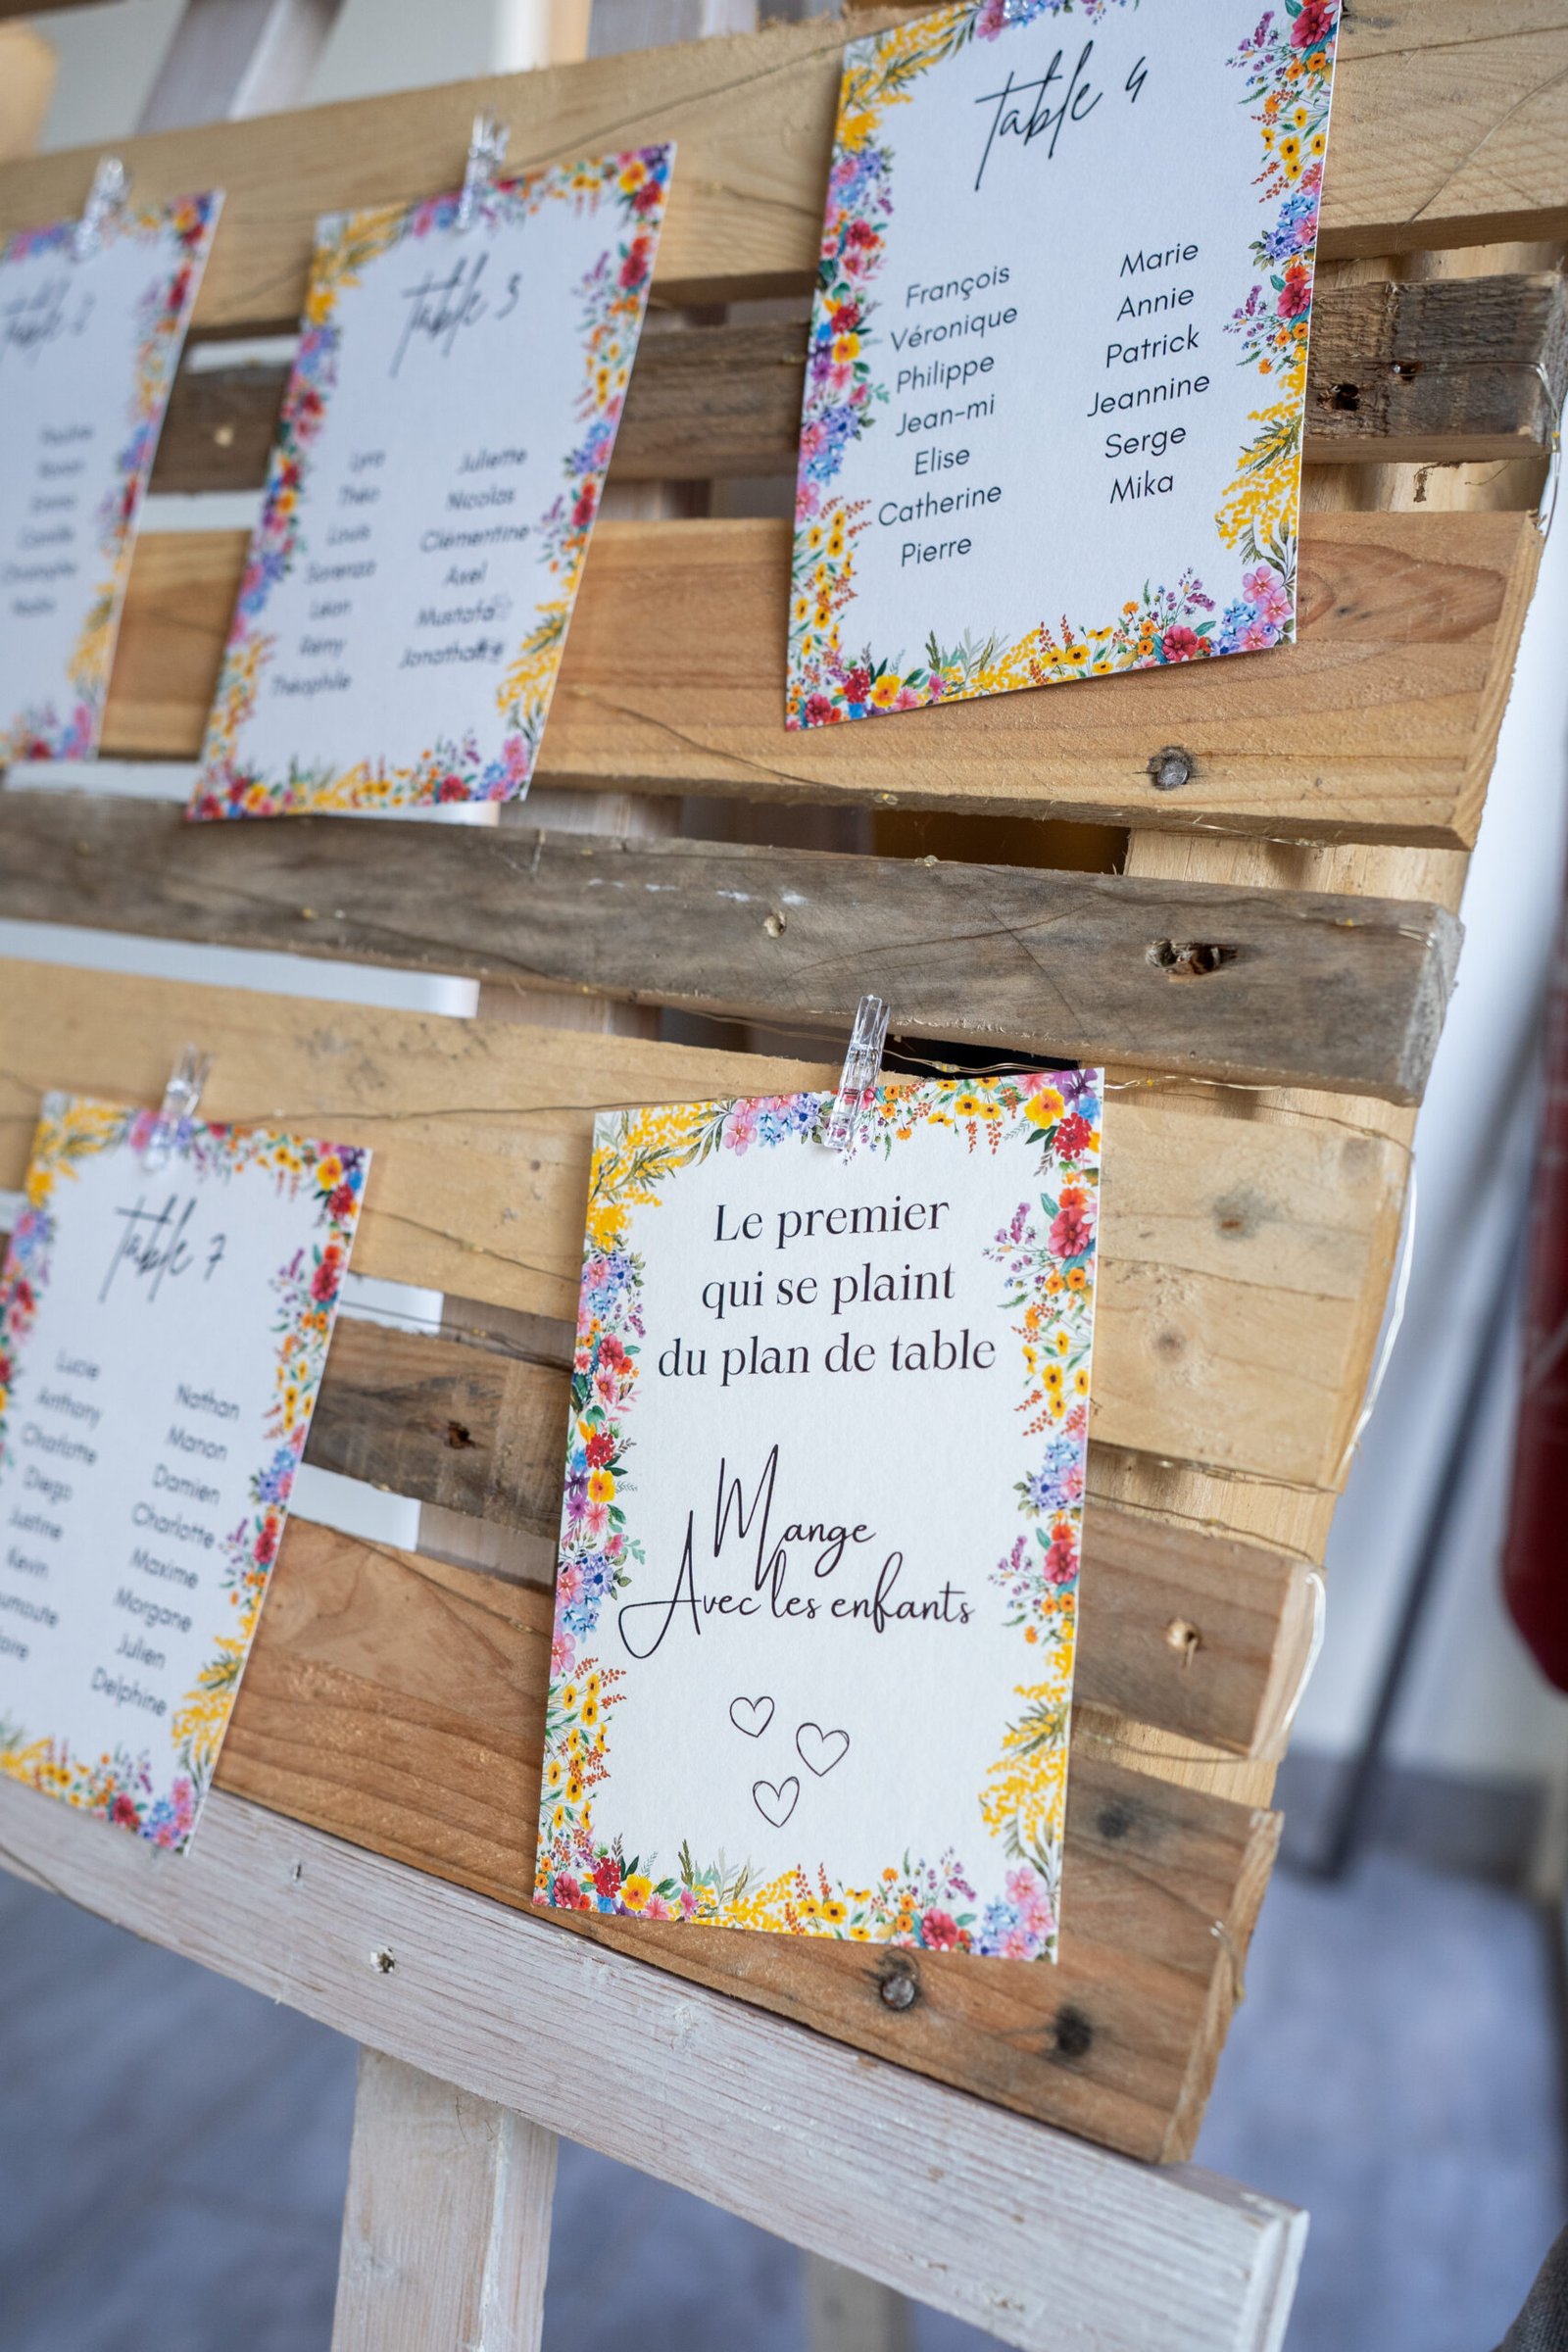 table 2
Pauline
Camille
Christophe
table 3
Lyra
Théo
Louis
Lorenzo
Léon
Rémy
Théophile
Juliette
Nicolas
Clémentine
Axel
Mustafa
table 4
François
Véronique
Philippe
Jean-mi
Elise
Catherine
Pierre
Marie
Annie
Patrick
Jeannine
Serge
Mika
table 7
Lucie
Anthony
Charlotte
Diego
Justine
Kevin
Nathan
Manon
Damien
Charlotte
Maxime
Morgane
Julien
Delphine
Le premier
qui se plaint
du plan de table
Mange
Avec les enfants